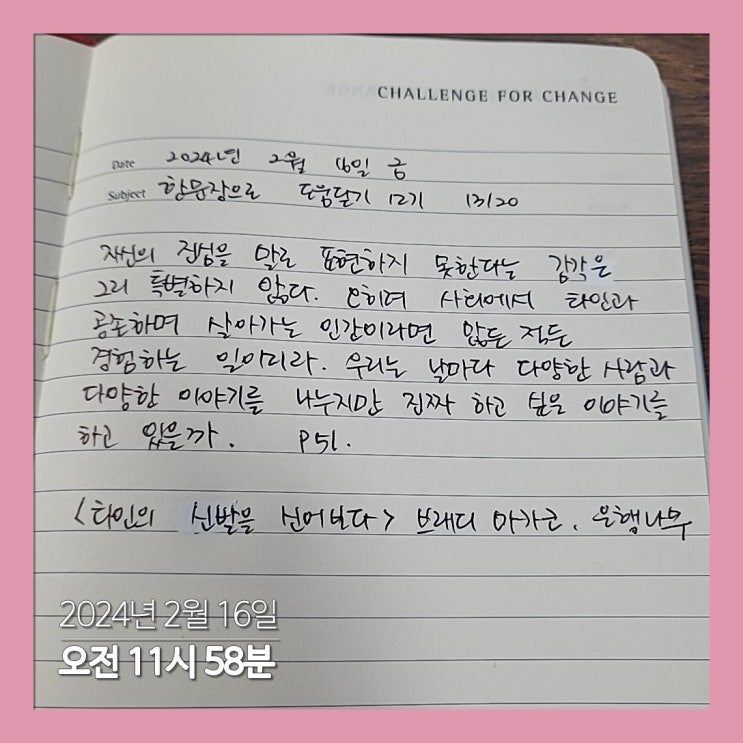 CHALLENGE FOR CHANGE
Date 2024년 2월 16일 금
Subject 한문장으로 도움닫기 12기 13/20
자신의 진심을 말로 표현하지 못한다는 감각은
그리 특별하지 않다. 오히려 사회에서 타인과
공존하며 살아가는 인간이라면 많든 적든
경험하는 일이리라. 우리는 날마다 다양한 사람과
다양한 이야기를 나누지만 진짜 하고 싶은 이야기를
하고 있을까. P51.
<타인의 신발을 신어보다> 브래디 미카코. 은행나무
2024년 2월 16일
오전 11시 58분